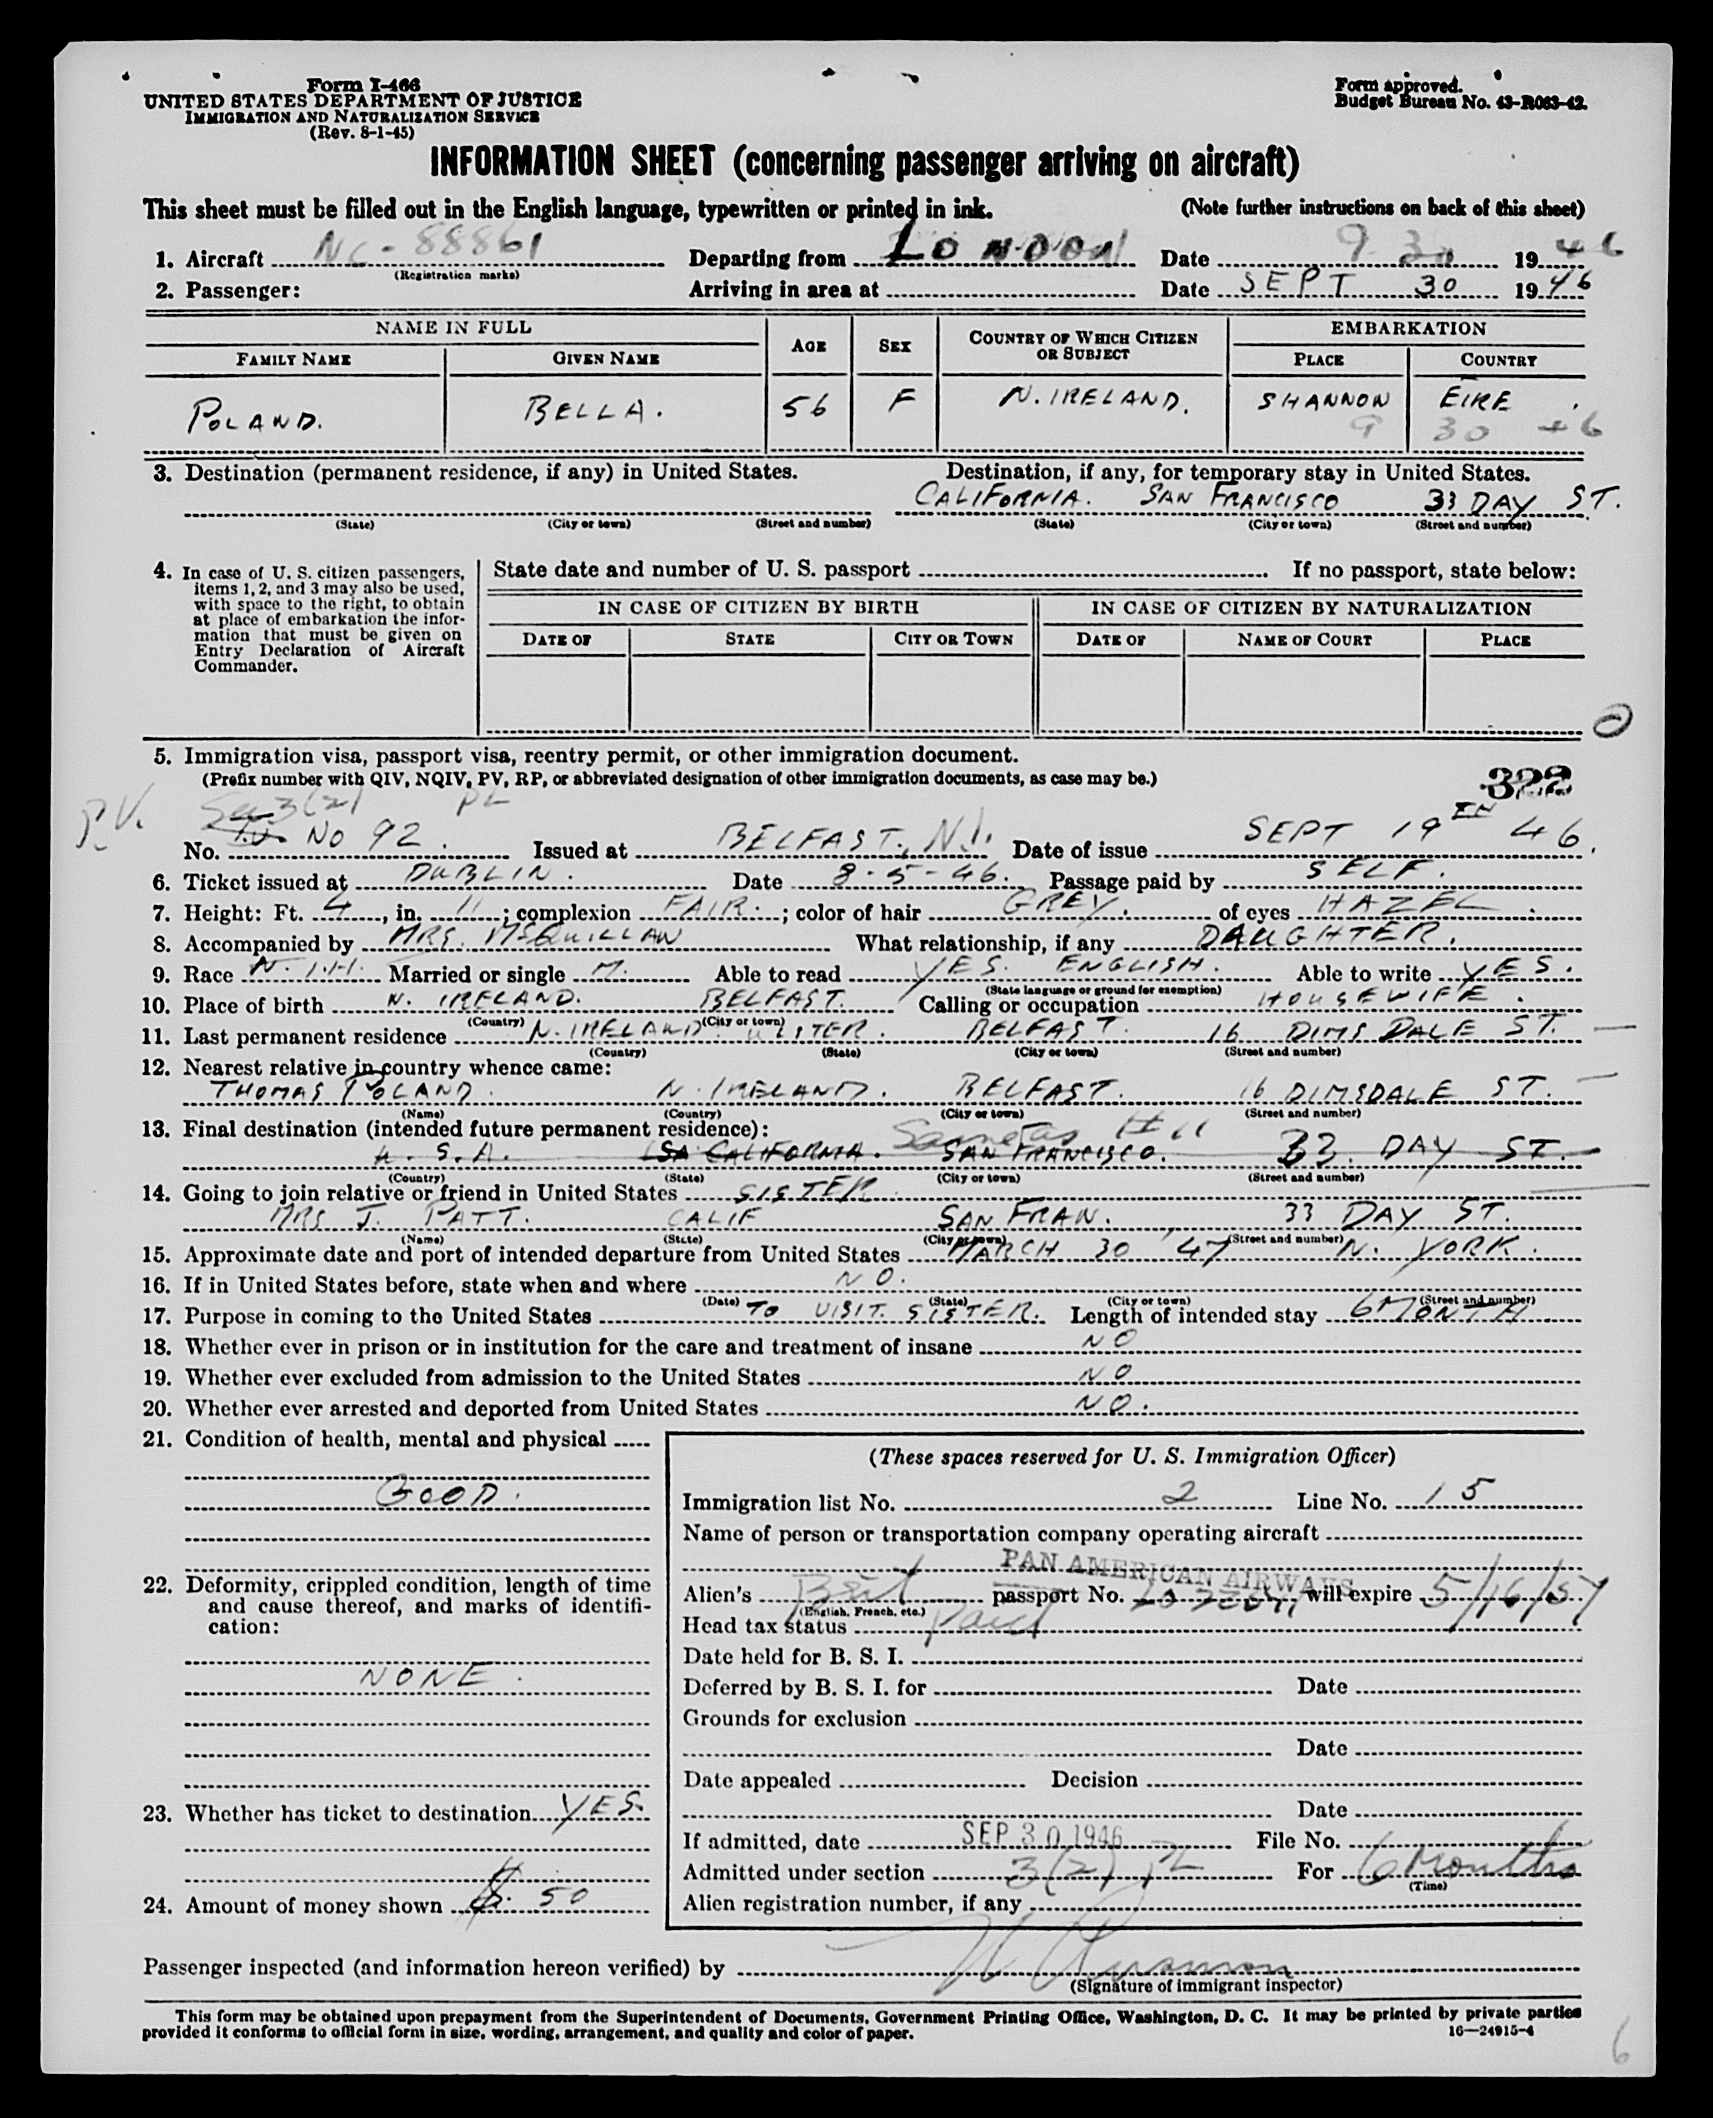 Form I-466
UNITED STATES DEPARTMENT OF JUSTICE
IMMIGRATION AND NATURALIZATION SERVICE
(Rev. 8-1-45)
Form approved.
Budget Bureau No. 43-R083-42.
INFORMATION SHEET (concerning passenger arriving on aircraft)
This sheet must be filled out in the English language, typewritten or printed in ink. (Note further instructions on back of this sheet)
1. Aircraft NC-88861 Departing from LONDON Date 9 30 1946
(Registration marks)
2. Passenger: Arriving in area at Date SEPT 30 1946
NAME IN FULL AGE SEX COUNTRY OF WHICH CITIZEN OR SUBJECT EMBARKATION
FAMILY NAME GIVEN NAME PLACE COUNTRY
POLAND. BELLA. 56 F N. IRELAND. SHANNON EIRE
9 30 46
3. Destination (permanent residence, if any) in United States. Destination, if any, for temporary stay in United States.
CALIFORNIA. SAN FRANCISCO 33 DAY ST.
(State) (City or town) (Street and number) (State) (City or town) (Street and number)
4. In case of U. S. citizen passengers, items 1, 2, and 3 may also be used, with space to the right, to obtain at place of embarkation the information that must be given on Entry Declaration of Aircraft Commander.
State date and number of U. S. passport If no passport, state below:
IN CASE OF CITIZEN BY BIRTH IN CASE OF CITIZEN BY NATURALIZATION
DATE OF STATE CITY OR TOWN DATE OF NAME OF COURT PLACE
5. Immigration visa, passport visa, reentry permit, or other immigration document.
(Prefix number with QIV, NQIV, PV, RP, or abbreviated designation of other immigration documents, as case may be.)
322
P.V. 3(2) PL
No. NO 92. Issued at BELFAST, N.I. Date of issue SEPT 19 46.
6. Ticket issued at DUBLIN. Date 8-5-46. Passage paid by SELF.
7. Height: Ft. 4, in. 11; complexion FAIR.; color of hair GREY. of eyes HAZEL.
8. Accompanied by MRS. McQUILLAN What relationship, if any DAUGHTER.
9. Race N. Married or single M. Able to read YES. ENGLISH. Able to write YES.
(State language or ground for exemption)
10. Place of birth N. IRELAND. BELFAST. Calling or occupation HOUSEWIFE.
(Country) (City or town)
11. Last permanent residence N. IRELAND. ULSTER. BELFAST. 16 DIMSDALE ST.
(Country) (State) (City or town) (Street and number)
12. Nearest relative in country whence came:
THOMAS POLAND. N. IRELAND. BELFAST. 16 DIMSDALE ST.
(Name) (Country) (City or town) (Street and number)
13. Final destination (intended future permanent residence): Same as #11
U. S. A. CALIFORNIA. SAN FRANCISCO. 33 DAY ST.
(Country) (State) (City or town) (Street and number)
14. Going to join relative or friend in United States SISTER.
MRS J. PATT. CALIF SAN FRAN. 33 DAY ST.
(Name) (State) (City or town) (Street and number)
15. Approximate date and port of intended departure from United States MARCH 30 '47 N. YORK.
16. If in United States before, state when and where NO.
(Date) (State) (City or town) (Street and number)
17. Purpose in coming to the United States TO VISIT SISTER. Length of intended stay 6 MONTH
18. Whether ever in prison or in institution for the care and treatment of insane NO
19. Whether ever excluded from admission to the United States NO
20. Whether ever arrested and deported from United States NO.
21. Condition of health, mental and physical
GOOD.
22. Deformity, crippled condition, length of time and cause thereof, and marks of identification:
NONE.
23. Whether has ticket to destination YES.
24. Amount of money shown $ 50
(These spaces reserved for U. S. Immigration Officer)
Immigration list No. 2 Line No. 15
Name of person or transportation company operating aircraft
PAN AMERICAN AIRWAYS
Alien's Brit passport No. will expire 5/16/57
(English, French, etc.)
Head tax status Paid
Date held for B. S. I.
Deferred by B. S. I. for Date
Grounds for exclusion
Date
Date appealed Decision
Date
If admitted, date SEP 30 1946 File No.
Admitted under section 3(2) PL For 6 Months
(Time)
Alien registration number, if any
Passenger inspected (and information hereon verified) by
(Signature of immigrant inspector)
This form may be obtained upon prepayment from the Superintendent of Documents, Government Printing Office, Washington, D. C. It may be printed by private parties
provided it conforms to official form in size, wording, arrangement, and quality and color of paper. 16—24915-4
6